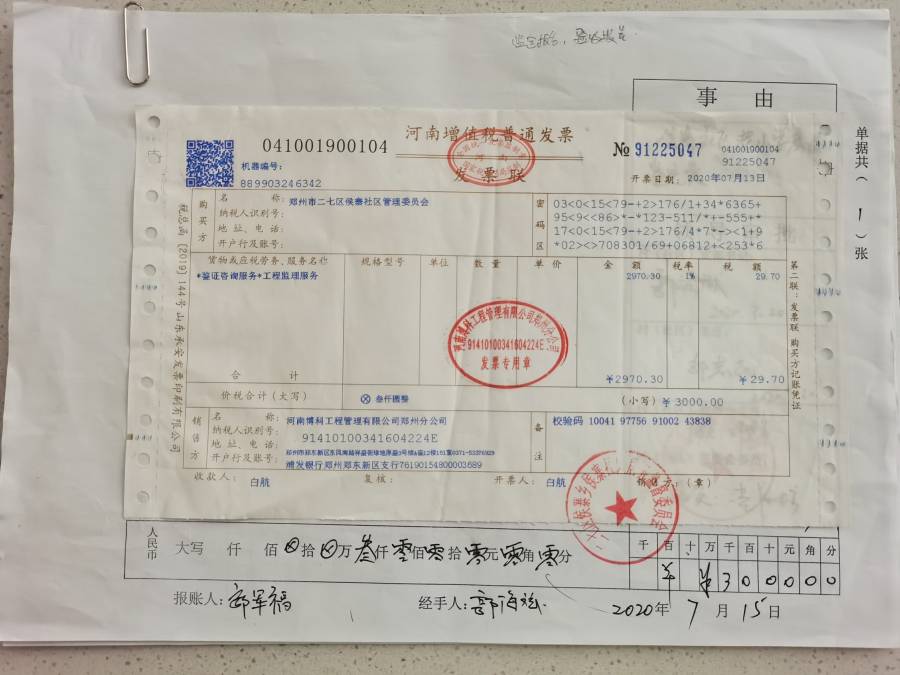 由 事
单据共（1）张
河南增值税普通发票
发票联
041001900104
№ 91225047
041001900104
91225047
机器编号：
889903246342
开票日期：2020年07月13日
税总函［2019］144号山东承安发票印刷有限公司
购买方
名　　称：郑州市二七区侯寨社区管理委员会
纳税人识别号：
地 址、电 话：
开户行及账号：
密码区
03<0<15<79-+2>176/1+34*6365+
95<9<<86>*-*123-511/*+-555+*
17<0<15<79-+2>176/4*7*-><1+9
*02><>708301/69+06812+<253*6
货物或应税劳务、服务名称 规格型号 单位 数 量 单 价 金 额 税率 税 额
*鉴证咨询服务*工程监理服务 2970.30 1% 29.70
河南博科工程管理有限公司郑州分公司
91410100341604224E
发票专用章
合 计 ¥2970.30 ¥29.70
价税合计（大写） ⊗ 叁仟圆整 （小写）¥ 3000.00
第二联：发票联 购买方记账凭证
销售方
名　　称：河南博科工程管理有限公司郑州分公司
纳税人识别号：91410100341604224E
地 址、电 话：
开户行及账号：浦发银行郑州郑东新区支行76190154800003689
备注
校验码 10041 97756 91002 43838
收款人：白航 复核： 开票人：白航 销售方：（章）
人民币 大写 仟 佰 ⊗拾 ⊗万 叁仟 零佰 零拾 零元 零角 零分
千 百 十 万 千 百 十 元 角 分
3 0 0 0 0 0
报账人： 经手人： 2020年 7 月 15 日